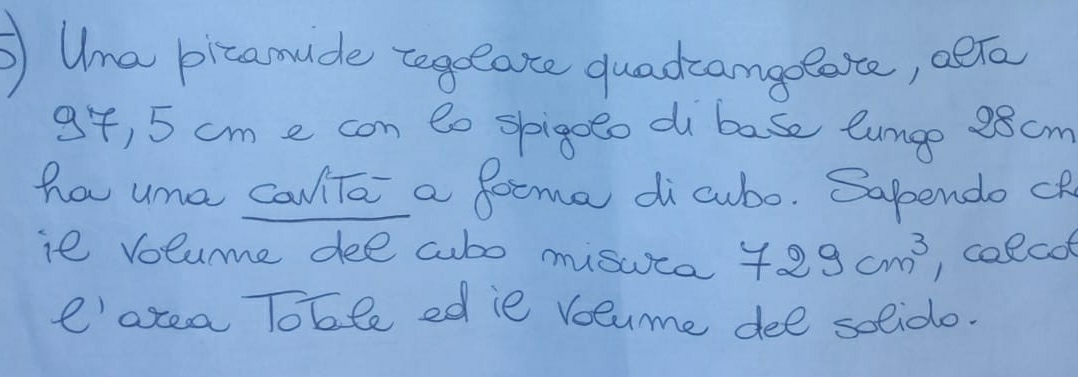 5) Una piramide regolare quadrangolare, alta
97,5 cm e con lo spigolo di base lungo 28 cm
ha una cavità a forma di cubo. Sapendo ch
il volume del cubo misura 729 cm³, calcol
l'area Totale ed il volume del solido.